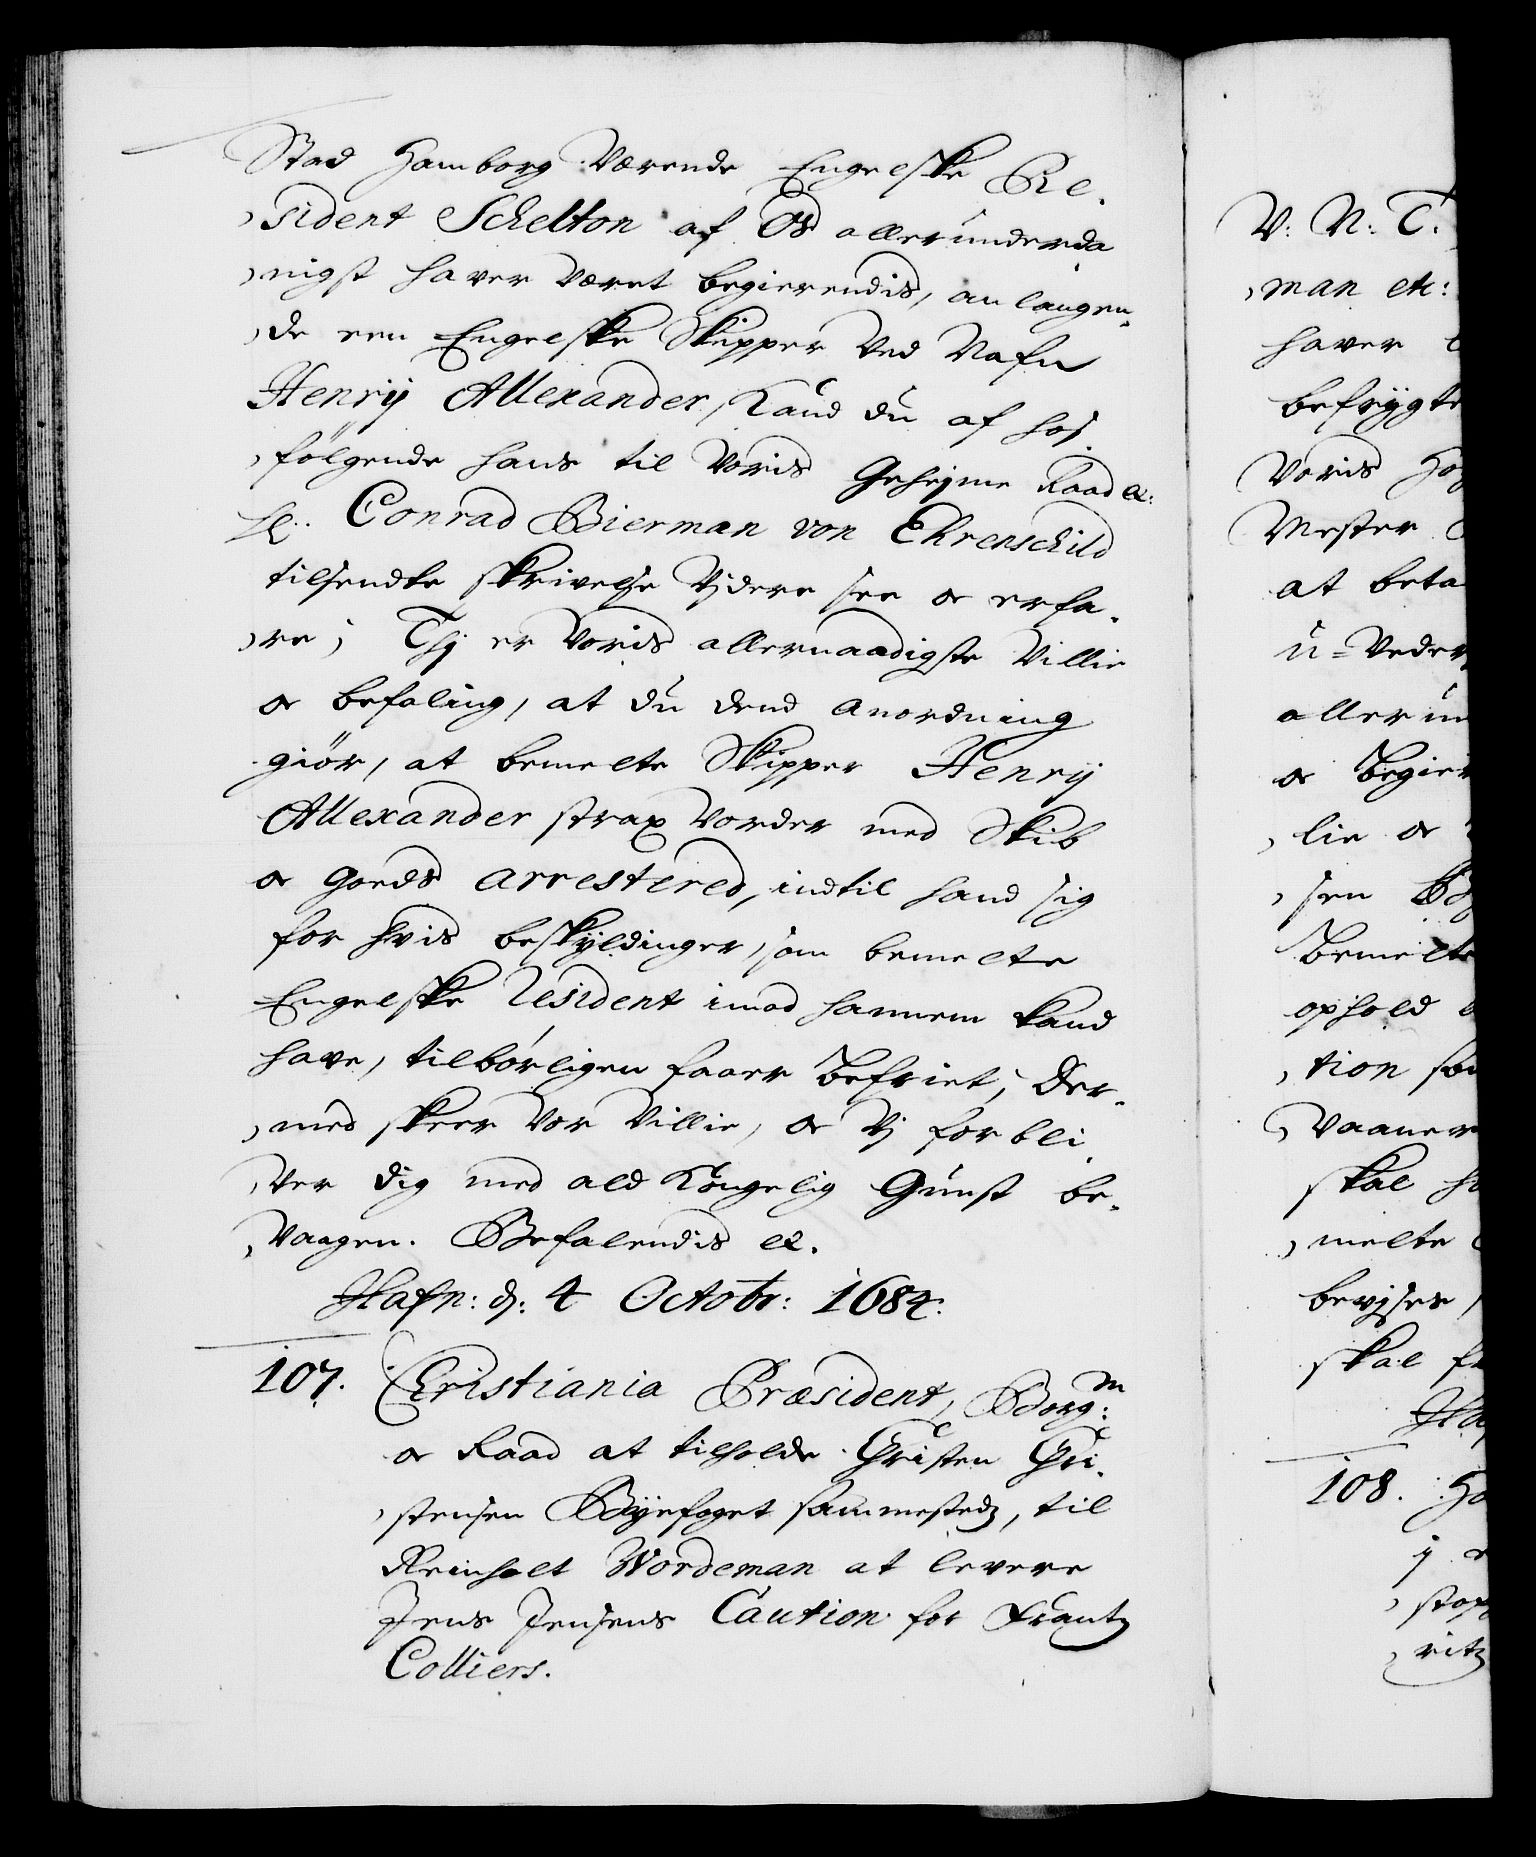 Stad Hamborg Værende Engelske Re-
sident Schelton af Os allerunderda
nigst haver Været begierendis, anlangen-
de een Engelske Skipper Ved Nafn
Henrÿ Allexander, Kand du af hos-
følgende hans til Voris Geheime Raad etc:
Hr. Conrad Bierman von Ehrenschild
tilsendte skrivelse Vjdere see oc erfa-
re; Thj er Voris allernaadigste Villie
oc befaling, at du dend Anordning
giör, at bemelte Skipper Henrÿ
Allexander strax vorder med Skib
oc Goeds Arrestered, indtil hand sig
for hvis beskÿldinger, som bemelte
Engelske Resident imod hannem kand
have, tilbörligen faaer befriet; Der-
med skeer Vor Villie, oc Vj forbli-
ver dig med ald Kongelig Gunst be-
vaagen. Befalendis etc.
Hafn: d: 4 Octobr: 1684.
107. Christiania Præsident, Borgm:
oc Raad at tilholde Christen Chri-
stensen Byefoget sammestedz, til
Reinholt Wordeman at levere
Jens Jensens Caution for Frantz
Colliers.
V: N: T.
man etc:
haver
befrygte
Voris
Mester
at beta
u-Veder
allerun
oc begier
lie oc
sen
bemelte
ophold
tion
Vaaner
skal
melte
bevjses,
skal
108.